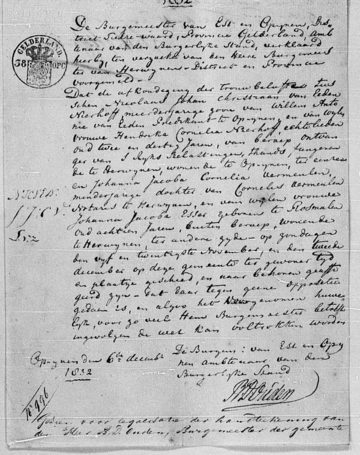 1832
De Burgemeester van Est en Opijnen, Dis-
trict Tielre-waard, Provincie Gelderland, Amb-
tenaar van den Burgerlyke Stand, verklaard
hierby, ter verzoeke van den Heere Burgemeester
te van Herwynen, District en Provincie
voorgemeld
Dat de afkondiging der trouw beloften tus-
schen Nicolaas Johan Christiaan van Eeden
Nierhoff meerderjarige zoon van Willem Anto
nie van Eeden Predikant te Opijnen en van wylen
vrouwe Hendrika Cornelia Nierhoff, echtelieden
oud twee en dertig Jaren, van beroep ontvan
ger van 's Ryks belastingen, thans fungeren
de te Herwynen, wonende te Opijnen ter eenre
en Johanna Jacoba Cornelia Vermeulen,
minderjarige dochter van Cornelis Vermeulen
Notaris te Herwynen, en van wylen vrouwe
Johanna Jacoba Esser geboren te Rossum
oud achttien Jaren, buiten beroep, wonende
te Herwynen, ter andere zyde - op zondagen
den vyf en twintigste November, en den tweede
december op deze gemeente ter gewoner tyd
en plaatse geschied en naar behoren geaffi
geerd zyn - dat daar tegen geene oppositie
gedaan is, en alzoo het voorgenomen huwe
lyk, voor zo veel Hem Burgemeester betreft
ingevolgen de wet kan voltrokken worden
Opijnen den 6de decemb:
1832
De Burgem: van Est en Opij
nen Ambtenaar van den
Burgerlyke Stand
GELDERLAND
No 996
Gezien voor legalisatie der handtekening van
den Heer B.D. Ouden, Burgemeester der gemeente